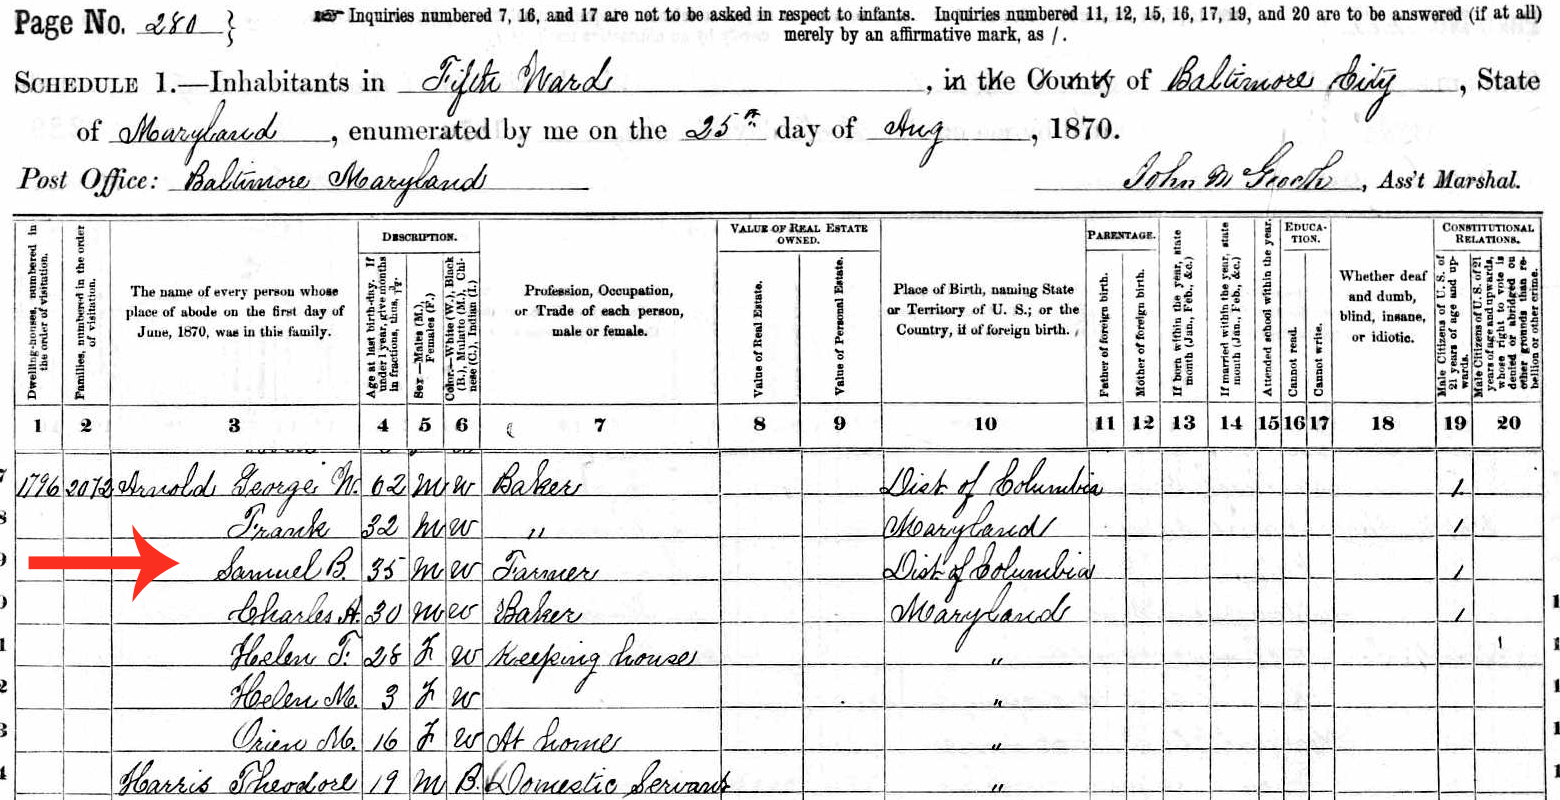 Page No. 280 }
Inquiries numbered 7, 16, and 17 are not to be asked in respect to infants. Inquiries numbered 11, 12, 15, 16, 17, 19, and 20 are to be answered (if at all)
merely by an affirmative mark, as /.
SCHEDULE 1.—Inhabitants in Fifth Ward, in the County of Baltimore City, State
of Maryland, enumerated by me on the 25th day of Aug, 1870.
Post Office: Baltimore Maryland
John M Gooch, Ass't Marshal.
Dwelling-houses, numbered in the order of visitation.
Families, numbered in the order of visitation.
The name of every person whose place of abode on the first day of June, 1870, was in this family.
DESCRIPTION.
Age at last birth-day. If under 1 year, give months in fractions, thus, 3/12.
Sex.—Males (M.), Females (F.)
Color.—White (W.), Black (B.), Mulatto (M.), Chinese (C.), Indian (I.)
Profession, Occupation, or Trade of each person, male or female.
VALUE OF REAL ESTATE OWNED.
Value of Real Estate.
Value of Personal Estate.
Place of Birth, naming State or Territory of U. S.; or the Country, if of foreign birth.
PARENTAGE.
Father of foreign birth.
Mother of foreign birth.
If born within the year, state month (Jan., Feb., &c.)
If married within the year, state month (Jan., Feb., &c.)
Attended school within the year.
EDUCATION.
Cannot read.
Cannot write.
Whether deaf and dumb, blind, insane, or idiotic.
CONSTITUTIONAL RELATIONS.
Male Citizens of U. S. of 21 years of age and upwards.
Male Citizens of U. S. of 21 years of age and upwards, whose right to vote is denied or abridged on other grounds than rebellion or other crime.
1 2 3 4 5 6 7 8 9 10 11 12 13 14 15 16 17 18 19 20
7 1796 2072 Arnold George W. 62 M W Baker Dist of Columbia 1
8 Frank 32 M W " Maryland 1
9 Samuel B. 35 M W Farmer Dist of Columbia 1
Charles A. 30 M W Baker Maryland 1
1 Helen F. 28 F W Keeping house "
2 Helen M. 3 F W "
3 Orien M. 16 F W At home "
4 Harris Theodore 19 M B Domestic Servant "